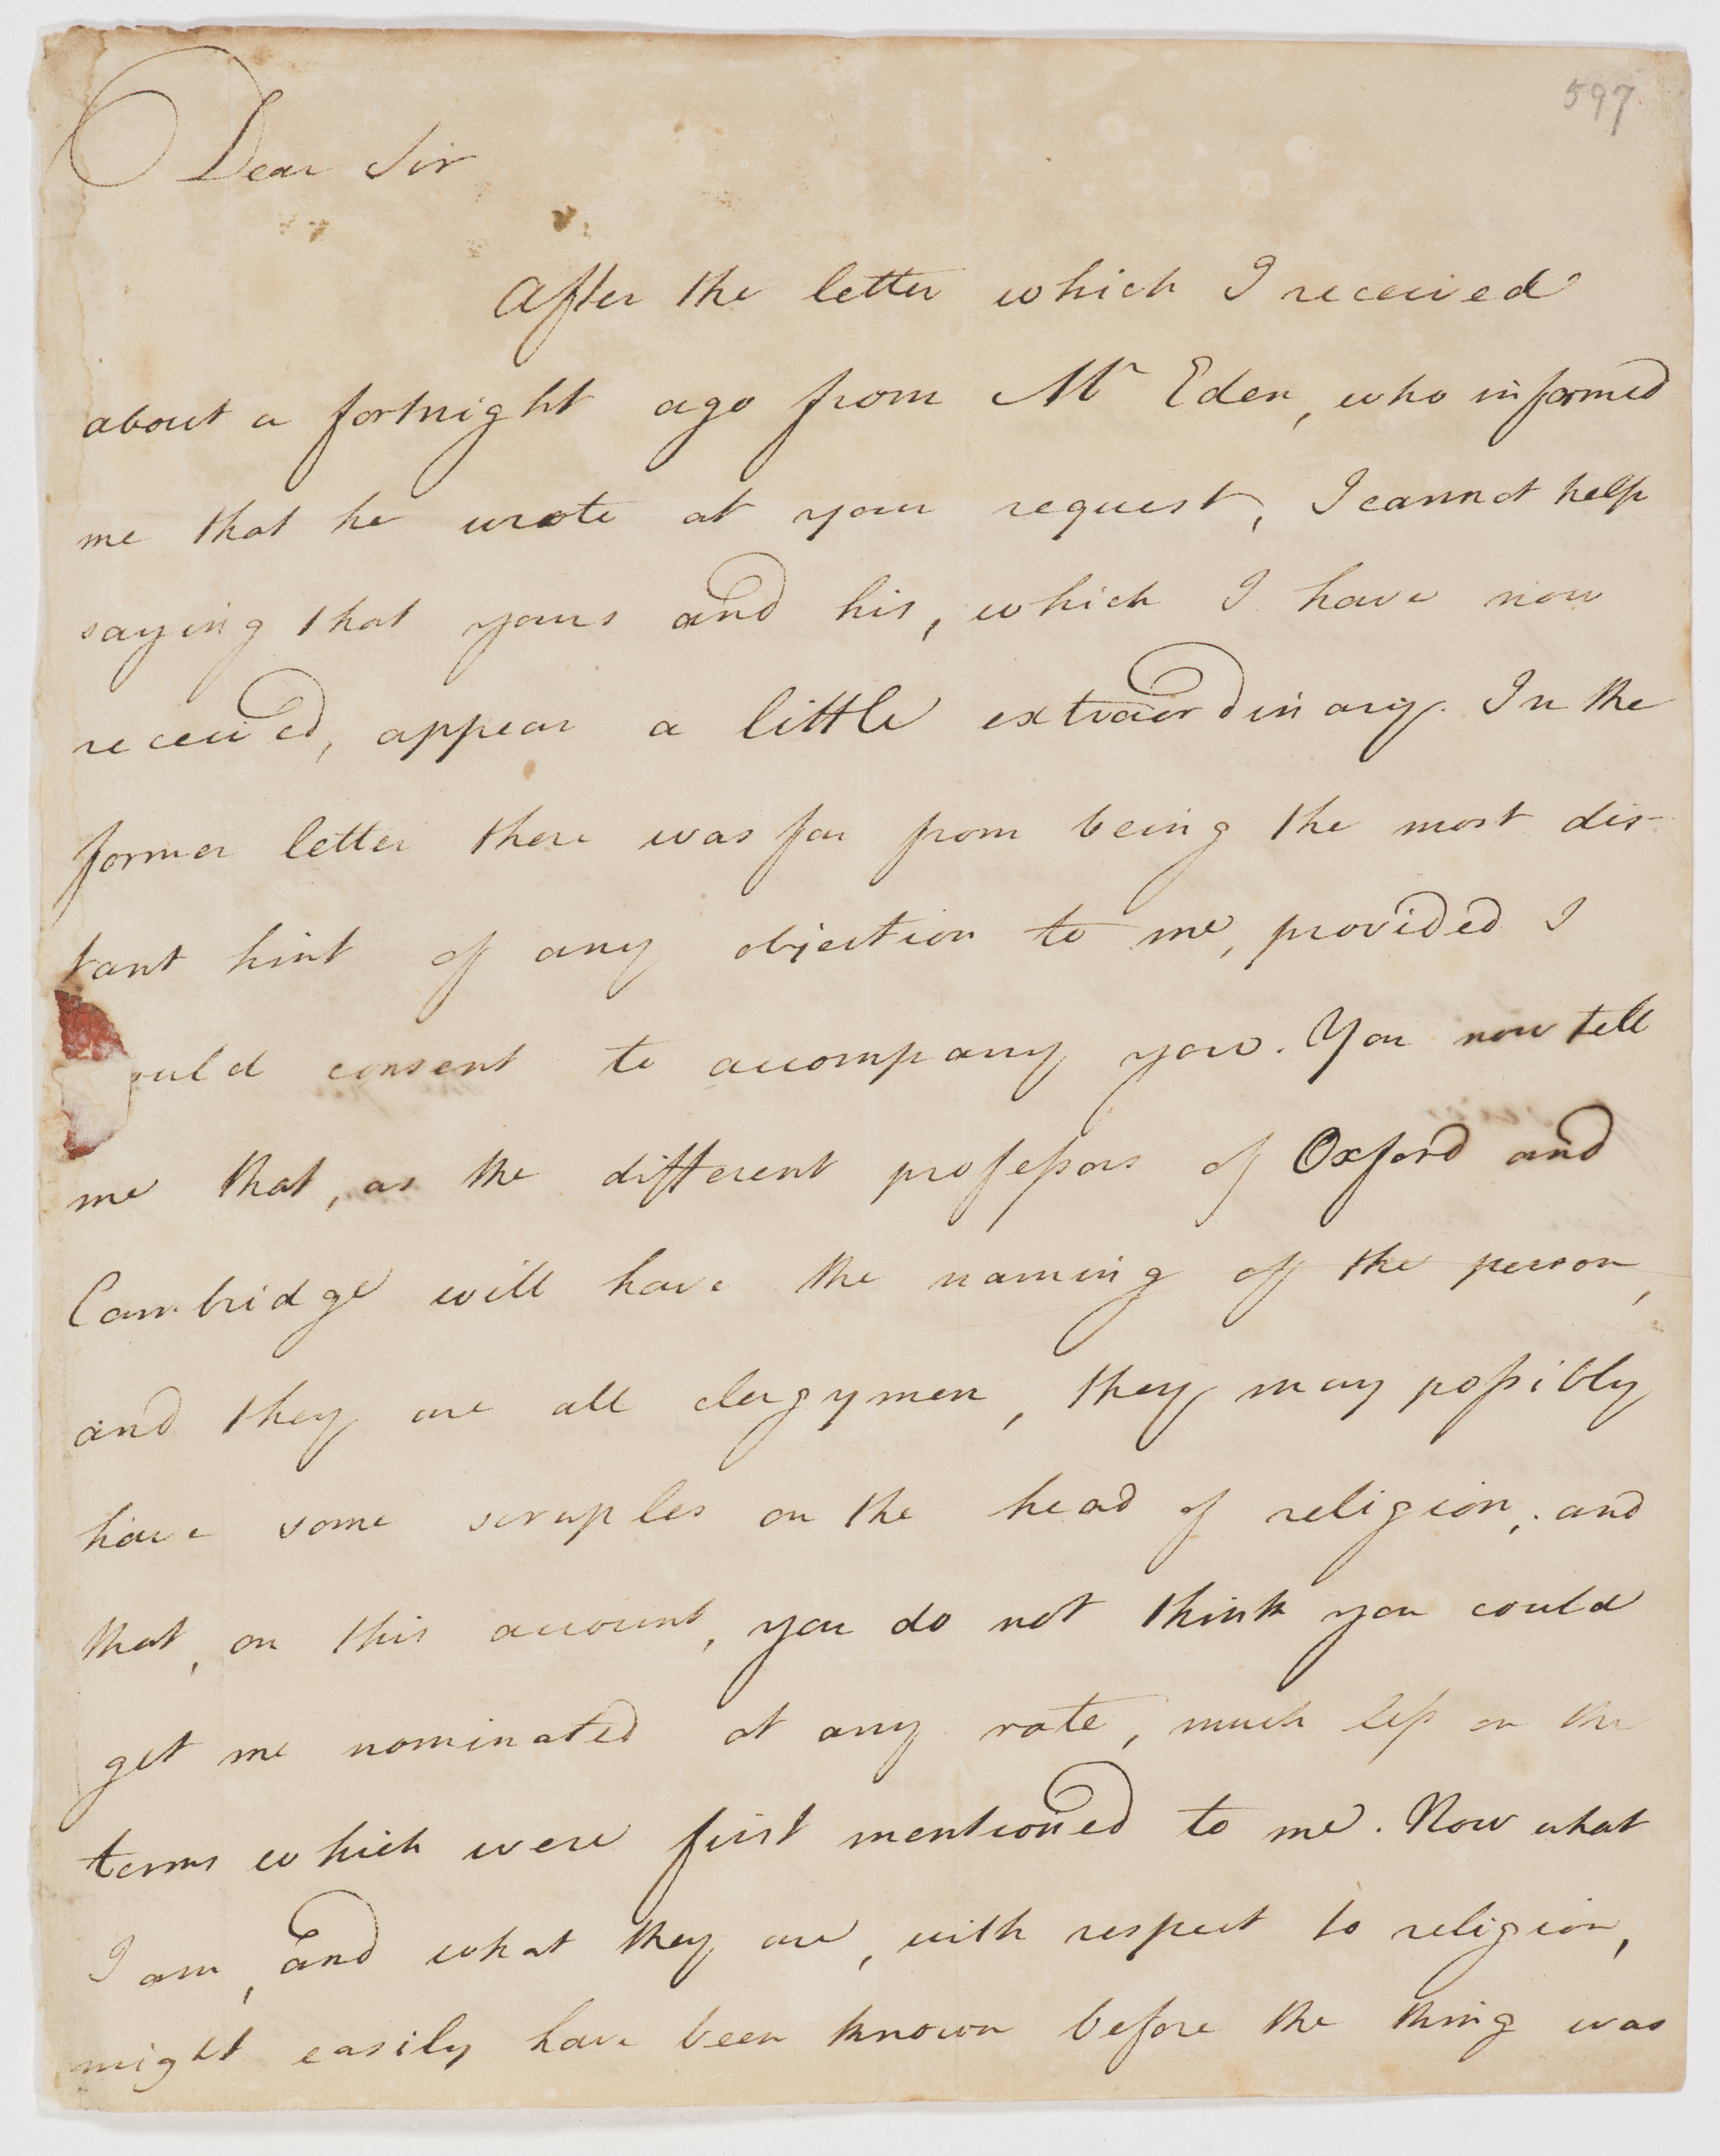 597.
Dear Sir
After the letter which I received
about a fortnight ago from Mr Eden, who informed
me that he wrote at your request, I cannot help
saying that yours and his, which I have now
received, appear a little extraordinary. In the
former letter there was far from being the most dis-
tant hint of any objection to me, provided I
ould consent to accompany you. You now tell
me that, as the different professors of Oxford and
Cambridge will have the naming of the person,
and they are all clergymen, they may possibly
have some scruples on the head of religion, and
that, on this account, you do not think you could
get me nominated at any rate, much less on the
terms which were first mentioned to me. Now what
I am, and what they are, with respect to religion,
might easily have been known before the thing was